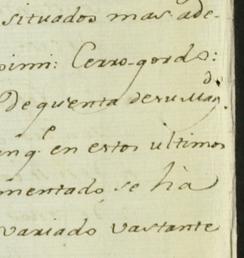 situados mas ade-
pimi: Cerro-gordo:
De quenta de su Mag.d
unq.e en estos ultimos
mentado, se ha
variado vastante